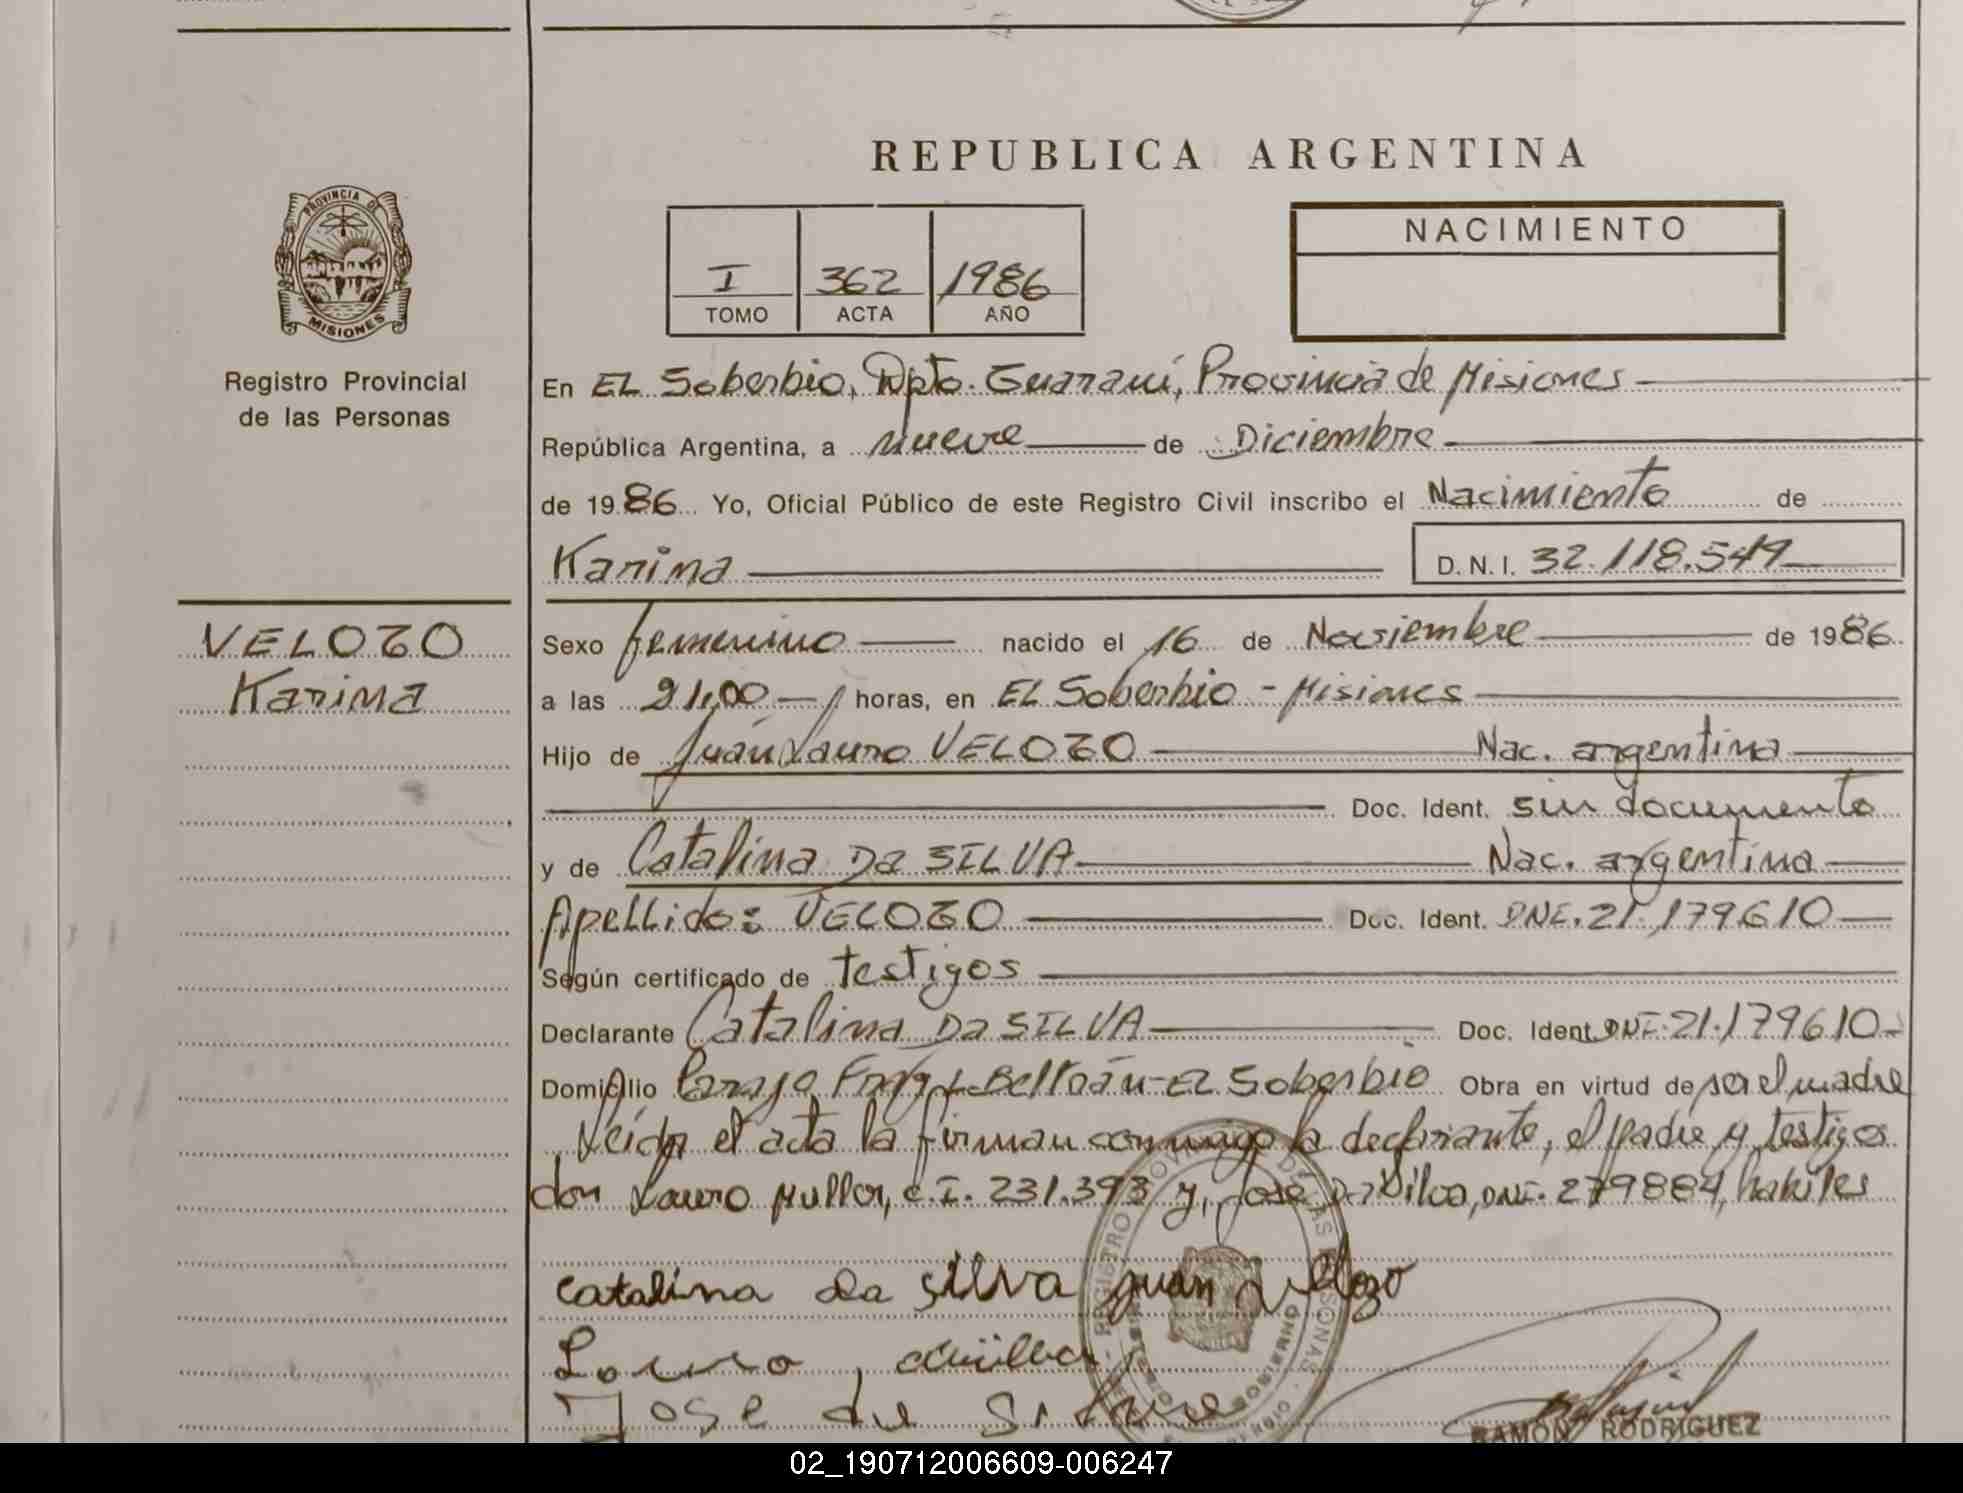 REPUBLICA ARGENTINA
PROVINCIA DE
MISIONES
Registro Provincial
de las Personas
I 362 1986
TOMO ACTA AÑO
NACIMIENTO
En EL Soberbio, Dpto. Guaraní, Provincia de Misiones
República Argentina, a nueve de Diciembre
de 1986 Yo, Oficial Público de este Registro Civil inscribo el Nacimiento de
Karina D.N.I. 32.118.549
VELOZO
Karina
Sexo femenino nacido el 16 de Noviembre de 1986
a las 21,00 horas, en EL Soberbio - Misiones
Hijo de Juán Lauro VELOZO Nac. argentina
Doc. Ident. sin documento
y de Catalina Da SILVA Nac. argentina
Apellido: VELOZO Doc. Ident. DNI. 21.179610
Según certificado de testigos
Declarante Catalina Da SILVA Doc. Ident. DNI. 21.179610
Domicilio Paraje Fray L. Beltrán - EL Soberbio Obra en virtud de ser el madre
Leída el acta la firman conmigo la declarante, el padre y testigos
don Lauro Muller, C.I. 231.393 y, José Da Silva, DNI. 279884, habiles
catalina da silva juan Vellozo
Lauro Müller
Jose da Silva
RAMON RODRIGUEZ
02_190712006609-006247